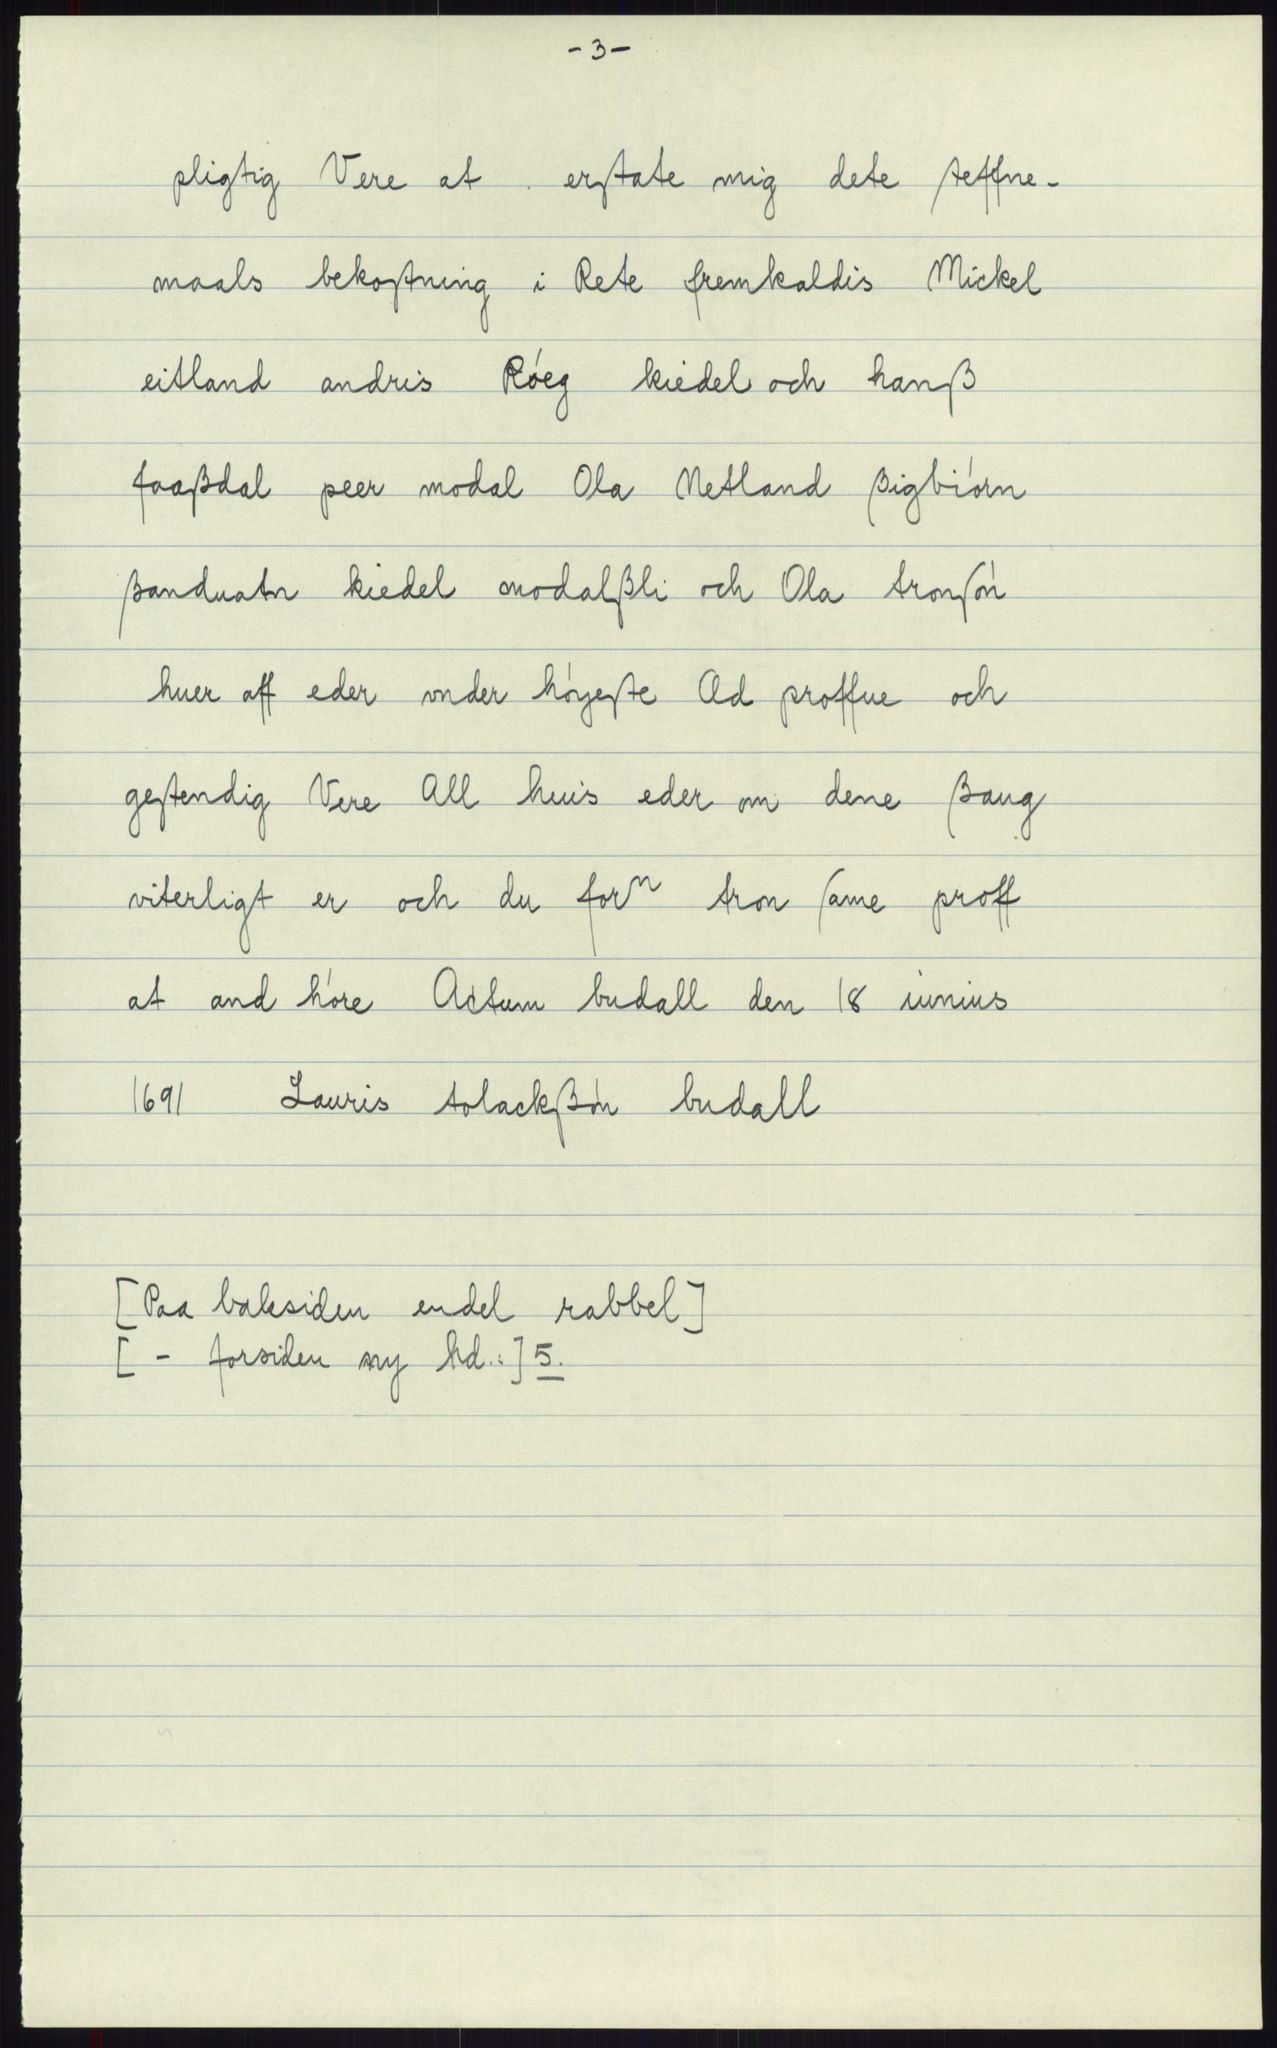 -3-
pligtig Vere at erstate mig dete steffne-
maals bekostning i Rete fremkaldis Mickel
eitland andris Róeg kiedel och hanß
faaßdal peer modal Ola Netland ßigbiórn
ßanduatn kiedel modalßli och Ola tronsón
huer aff eder vnder hóyeste Ed proffue och
gestendig Vere All huis eder om dene ßaug
viterligt er och du forⁿ tron same proff
at and hóre Actum budall den 18 iunius
1691 Lauris tolackßón budall
[Paa baksiden endel rabbel]
[ - forsiden ny hd.:] 5.